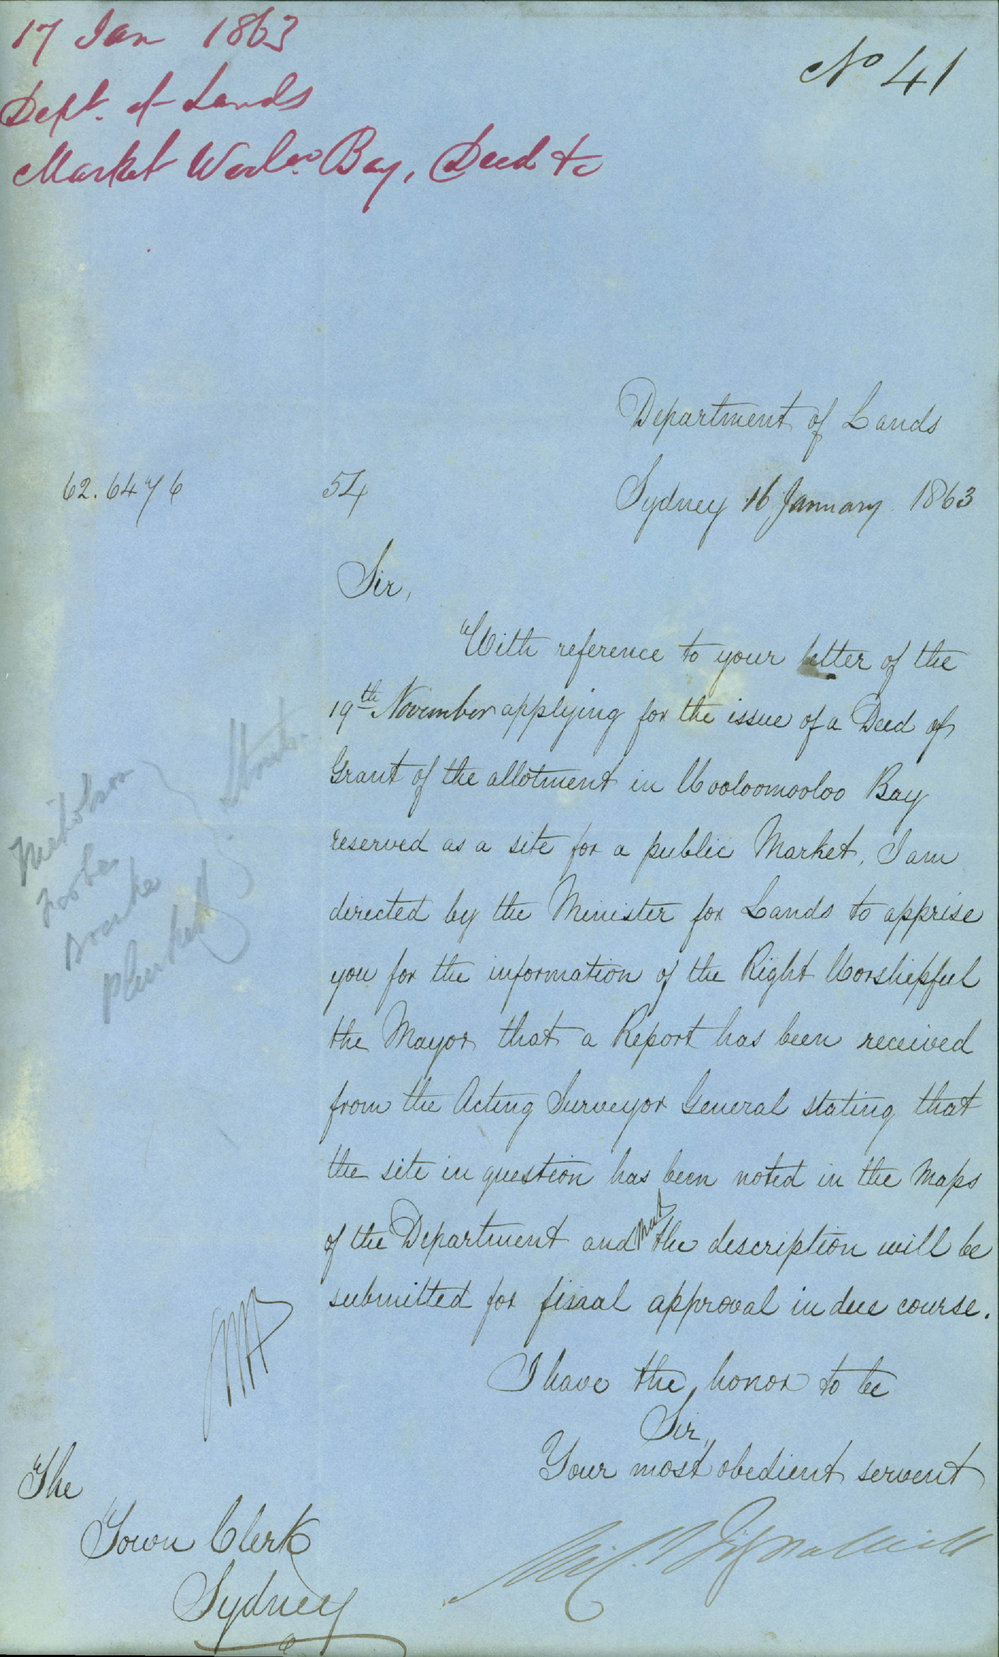 17 Jan 1863
Dept. of Lands
Market Wooloo Bay, Deed to
No 41
Department of Lands
62.6476 54 Sydney 16 January 1863
Sir,
With reference to your letter of the
19th November applying for the issue of a Deed of
Grant of the allotment in Wooloomooloo Bay
reserved as a site for a public Market, I am
directed by the Minister for Lands to apprise
you for the information of the Right Worshipful
the Mayor that a Report has been received
from the Acting Surveyor General stating that
the site in question has been noted in the Maps
of the Department and that the description will be
submitted for final approval in due course.
I have the honor to be
Sir,
Your most obedient servent
Nicholson
Plunkett
The
Town Clerk
Sydney